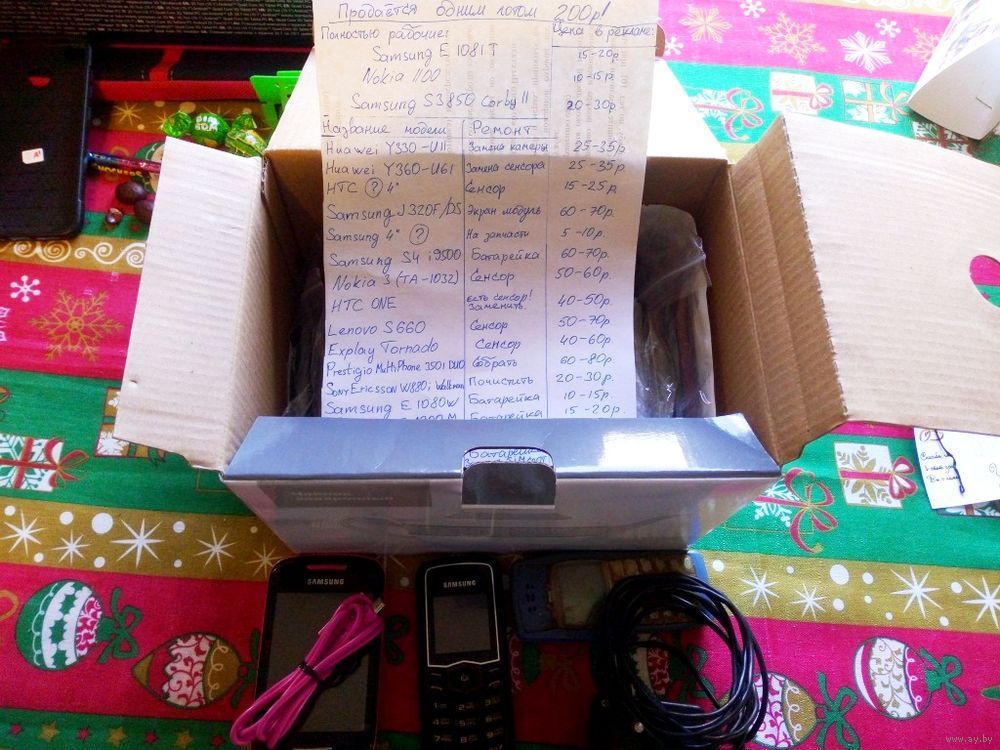 Продаётся одним лотом 200р!
Полностью рабочие: Цена в рекламе:
Samsung E 1081T 15-20р
Nokia 1100 10-15р.
Samsung S3850 Corby II 20-30р.
Название модели Ремонт
Huawei Y330-U11 Замена камеры 25-35р
Huawei Y360-U61 Замена сенсора 25-35р
HTC ? 4" Сенсор 15-25р
Samsung J320F/DS Экран модуль 60-70р.
Samsung 4" ? На запчасти 5-10р.
Samsung S4 i9500 Батарейка 60-70р.
Nokia 3 (TA-1032) Сенсор 50-60р.
HTC ONE есть сенсор! Заменить. 40-50р.
Lenovo S660 Сенсор 50-70р.
Explay Tornado Сенсор 40-60р.
Prestigio MultiPhone 3501 DUO Собрать 60-80р.
Sony Ericsson W880i Walkman Почистить 20-30р.
Samsung E 1080W Батарейка 10-15р.
Батарейка 15-20р.
Батарейка
SAMSUNG
SAMSUNG
www.ay.by